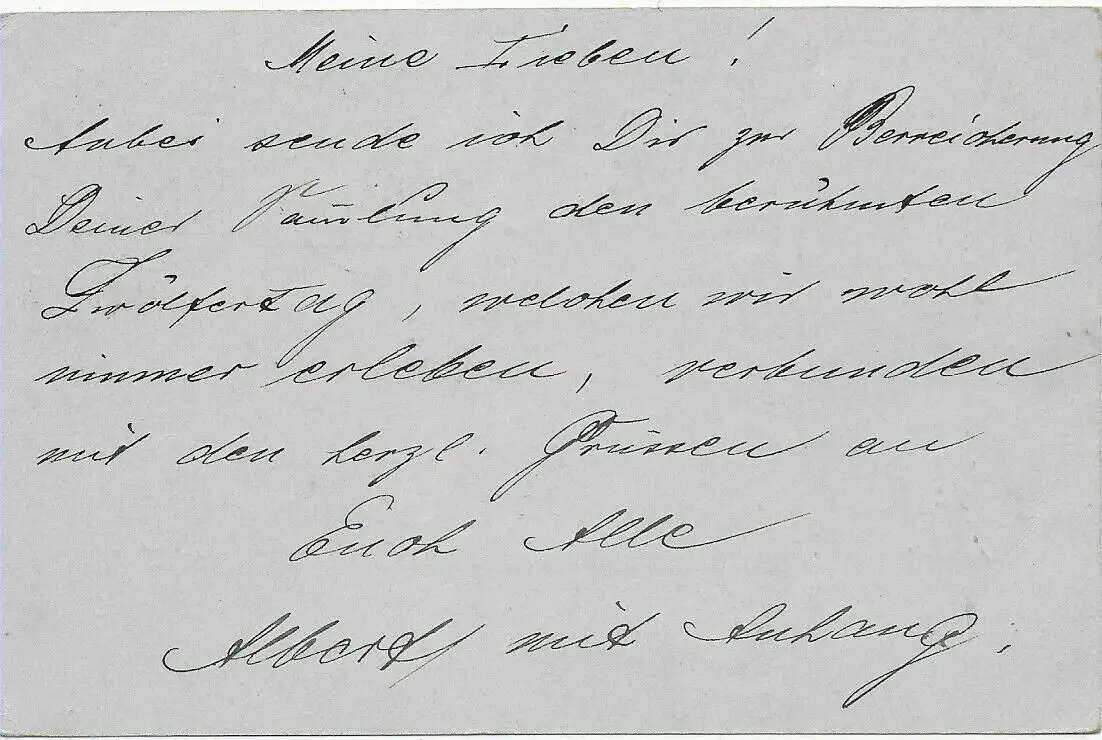 Meine Lieben!
Anbei sende ich Dir zur Berreicherung
Deiner Sam̄lung den berühmten
Zwölfertag, welchen wir wohl
nimmer erleben, verbunden
mit den herzl. Grüssen an
Euch Alle
Albert mit Anhang.